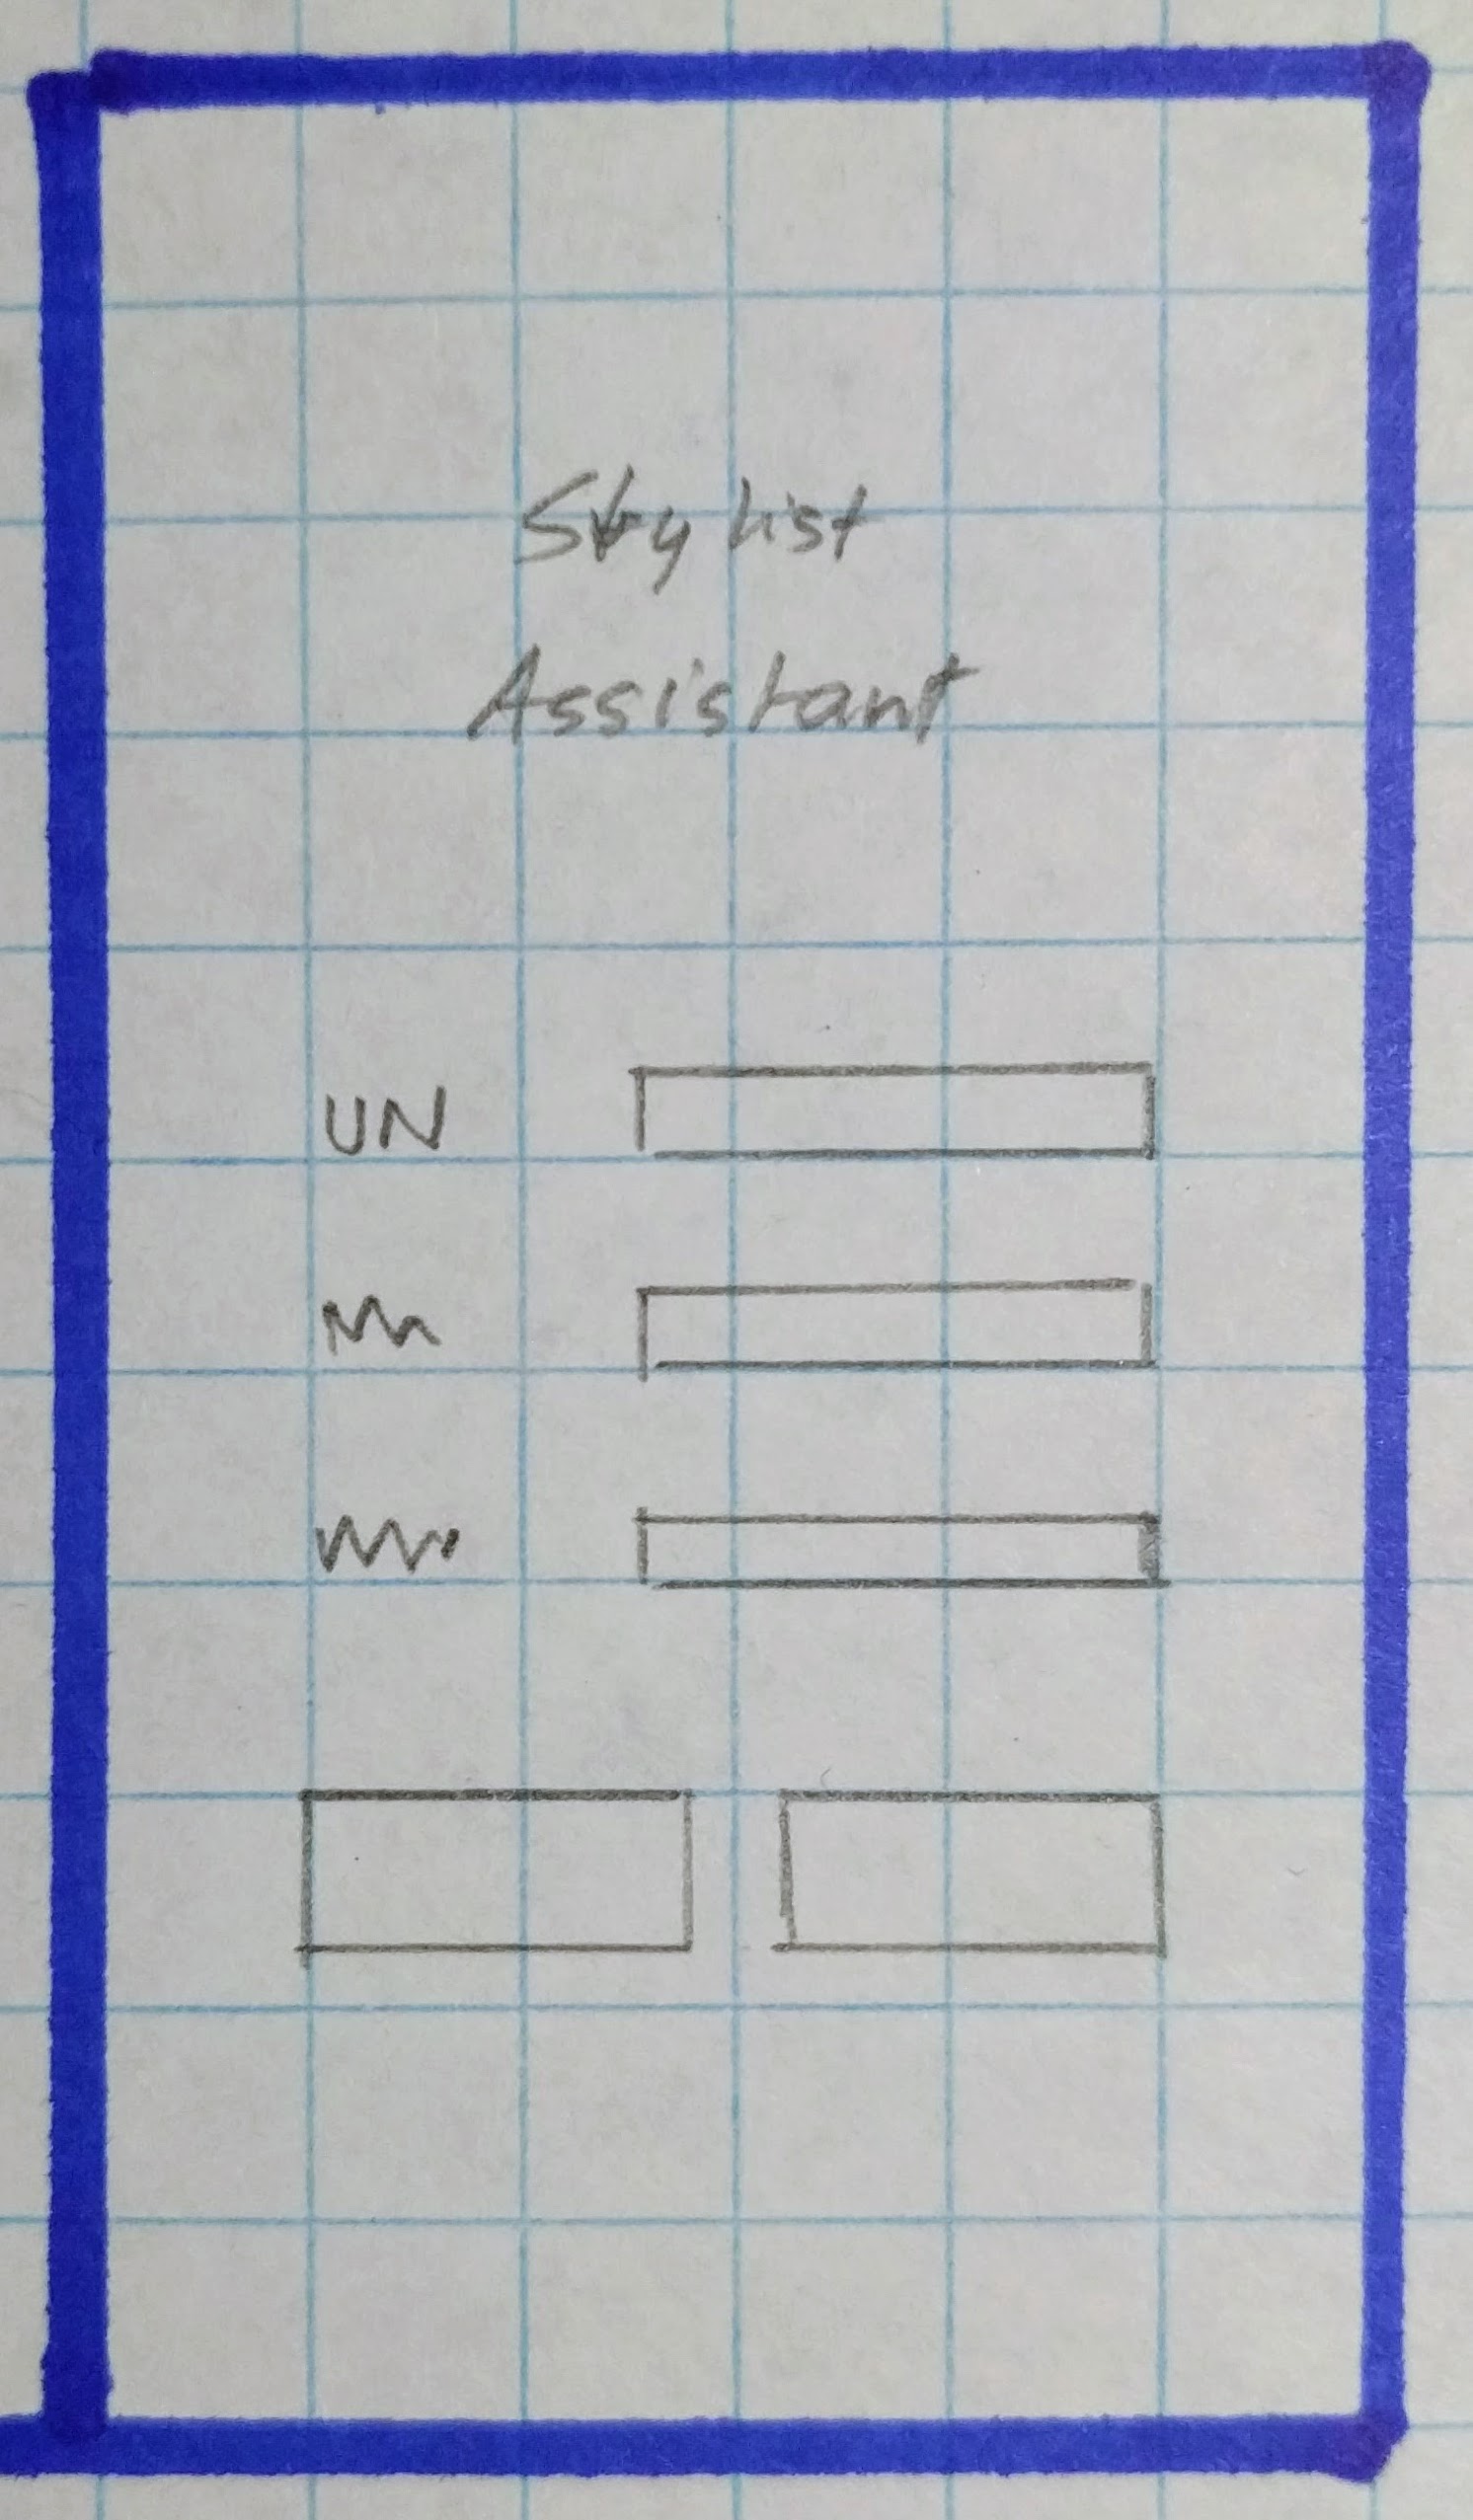 Stylist
Assistant
UN